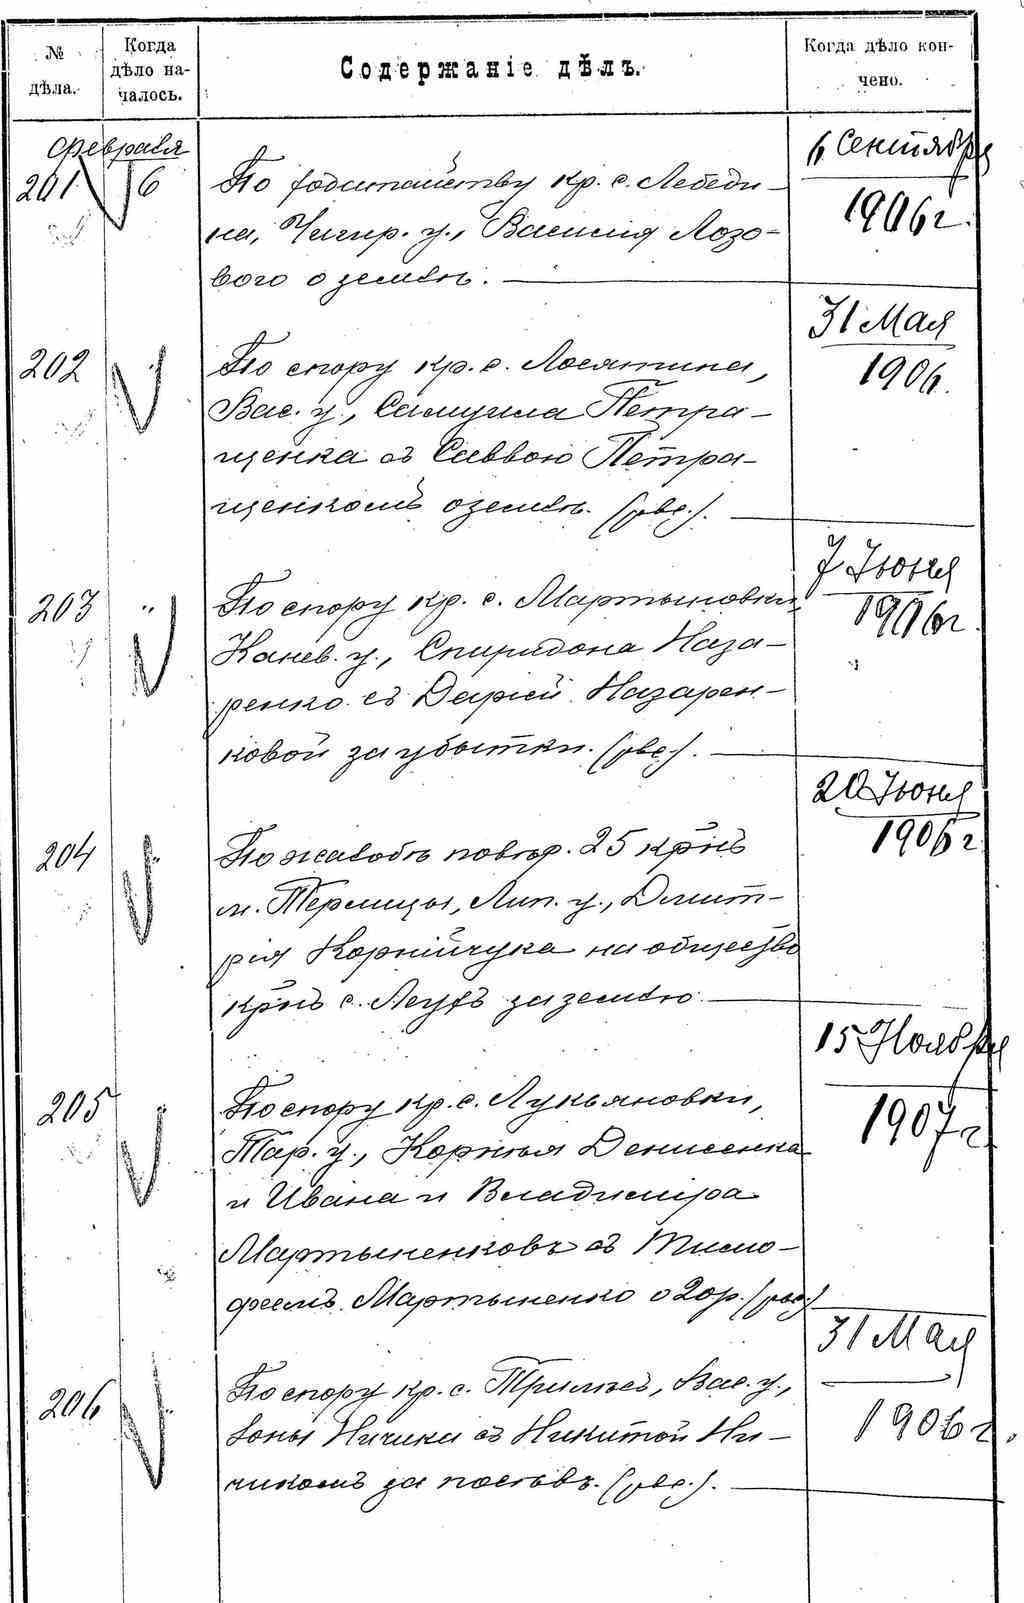 № дѣла.
Когда дѣло на-
чалось.
Содержаніе дѣлъ.
Когда дѣло кон-
чено.
Февраля
201 6 По ходатайству кр. с. Лебеди-
на, Чигир. у., Василія Лозо-
вого о землѣ.
6 Сентября
1906 г.
202 " По спору кр. с. Лосятина,
Вас. у., Самуила Петра-
щенка съ Саввою Петра-
щенкомъ о землѣ. (рев.).
31 Мая
1906.
203 " По спору кр. с. Мартыновки,
Канев. у., Спиридона Наза-
ренко съ Даріей Назарен-
ковой за убытки. (рев.).
7 Іюня
1906 г.
204 " По жалобѣ повѣр. 25 кр̃нъ
м. Терлицы, Лип. у., Дмит-
рія Корнійчука на общество
кр̃нъ с. за землю.
20 Іюня
1906 г.
205 " По спору кр. с. Лукьяновки,
Тар. у., Корнѣя Денисенка
и Ивана и Владиміра
Мартыненковъ съ Тимо-
феемъ Мартыненко о 20 р. (рев.)
15 Ноября
1907 г.
206 " По спору кр. с. Трилѣсъ, Вас. у.,
Іоны Ничика съ Никитой Ни-
чикомъ за посѣвъ. (рев.).
31 Мая
1906 г.